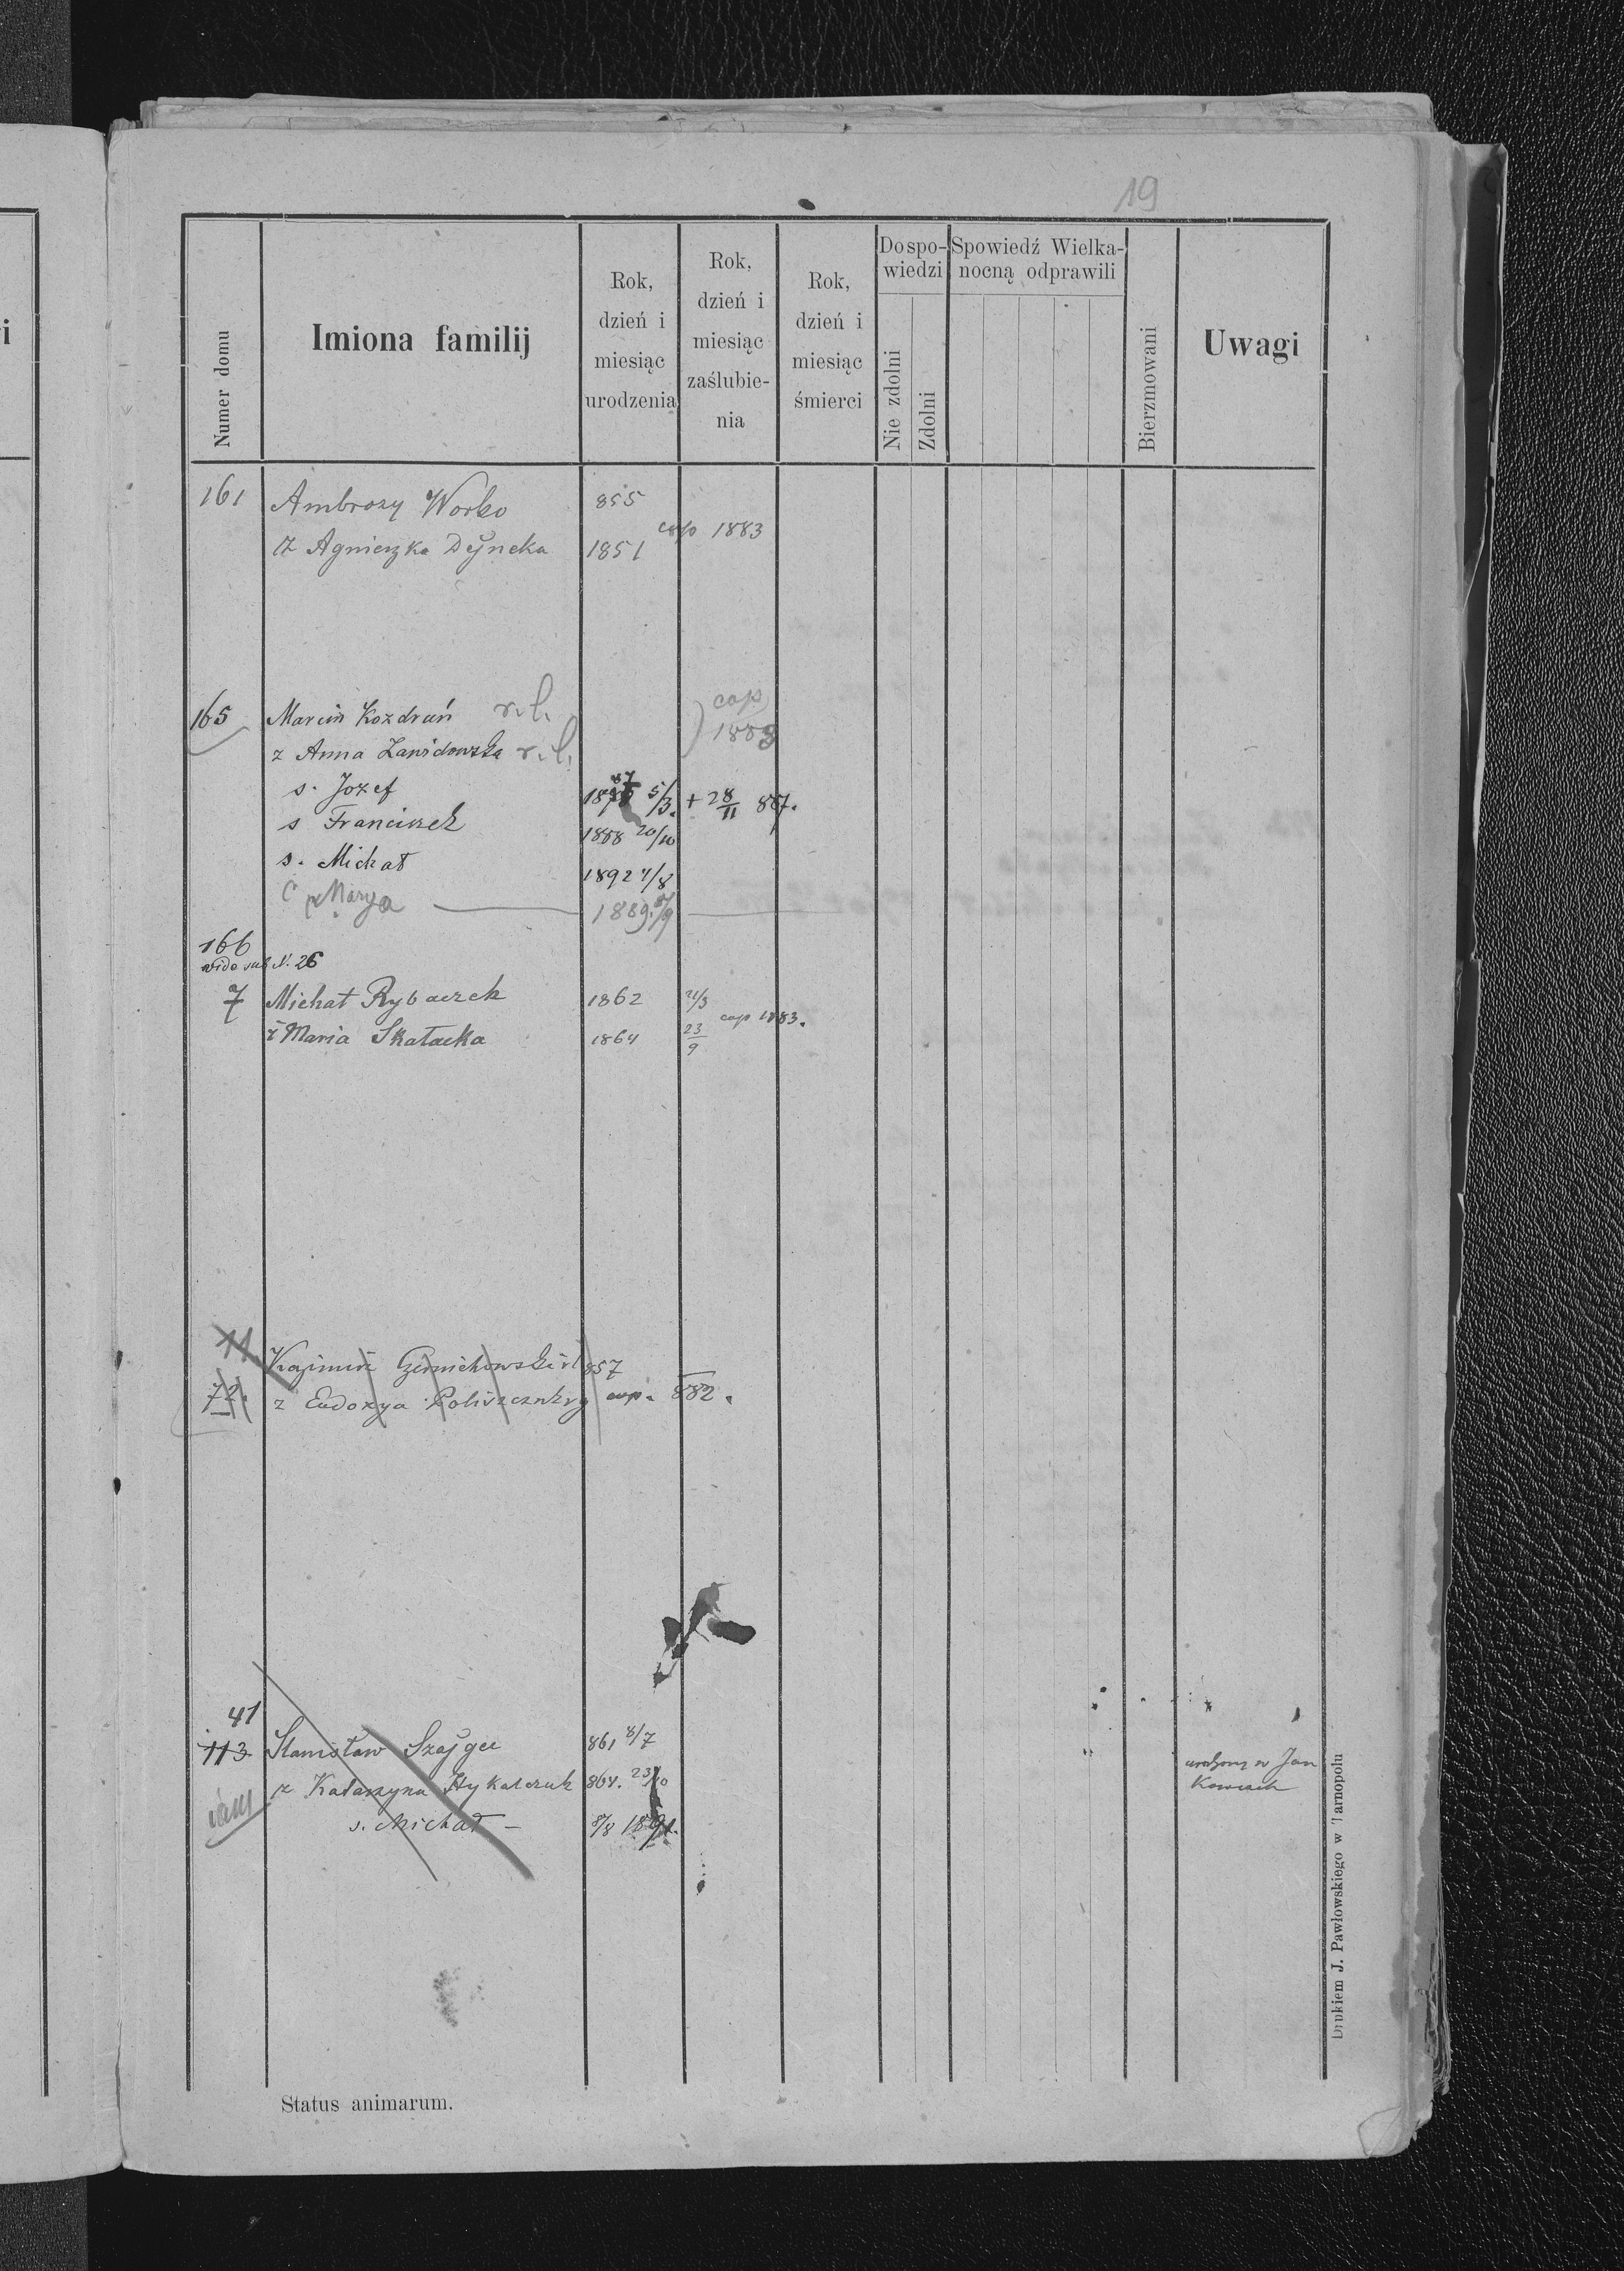 19
Numer domu
Imiona familij
Rok, dzień i miesiąc urodzenia
Rok, dzień i miesiąc zaślubie-nia
Rok, dzień i miesiąc śmierci
Dospo-wiedzi
Nie zdolni
Zdolni
Spowiedź Wielka-nocną odprawili
Bierzmowani
Uwagi
161 Ambrozy Worko 855
ż Agnieszka Dÿneka 1851 cop 1883
165 Marcin Kozdruń r. l. cop
z Anna Zawidowska r. l. 1883
s. Jozef 87 5/3. + 28/11 887.
s Franciszek 1888 20/10
s. Michał 1892 7/8
C Marya 1889.
166
vide sub N. 26
7 Michał Rybaczek 1862 21/3
ż Maria Skałacka 1864 23/9 cop 1883.
11 Kazimirz 857
72. z Eudoxya cop. 882.
41
113 Stanisław Szajger 861 8/7
z Katarzyna Hykalczuk 864. 23/10
s. Michał - 8/8 1891.
urodzony w Jan
Drukiem J. Pawłowskiego w Tarnopolu
Status animarum.